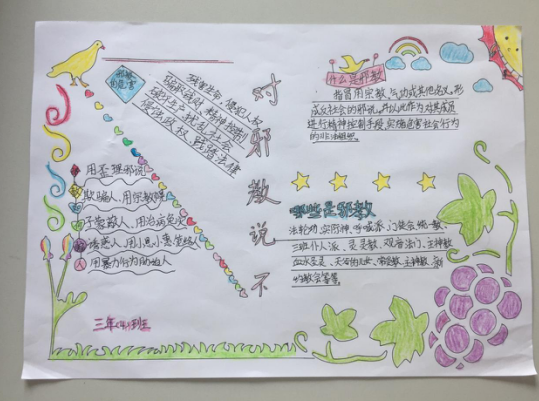 邪教
的危害
残害生命、侵犯人权
骗取钱财、精神控制
破坏生产、扰乱社会
侵蚀政权、践踏法律
对
邪
教
说
不
什么是邪教
指冒用宗教、气功或其他名义,形
成反社会的邪说,并以此作为对其成员
进行精神控制手段,实施危害社会行为
的非法组织。
哪些是邪教
法轮功、实际神、呼喊派、门徒会、统一教
三班仆人派、灵灵教、观音法门、主神教
血水圣灵、
主神教
教会等等。
用歪理邪说
欺骗人、用宗教
人、用治病免灾
诱惑人、用小恩小惠
人、用暴力行为
人
三年
班